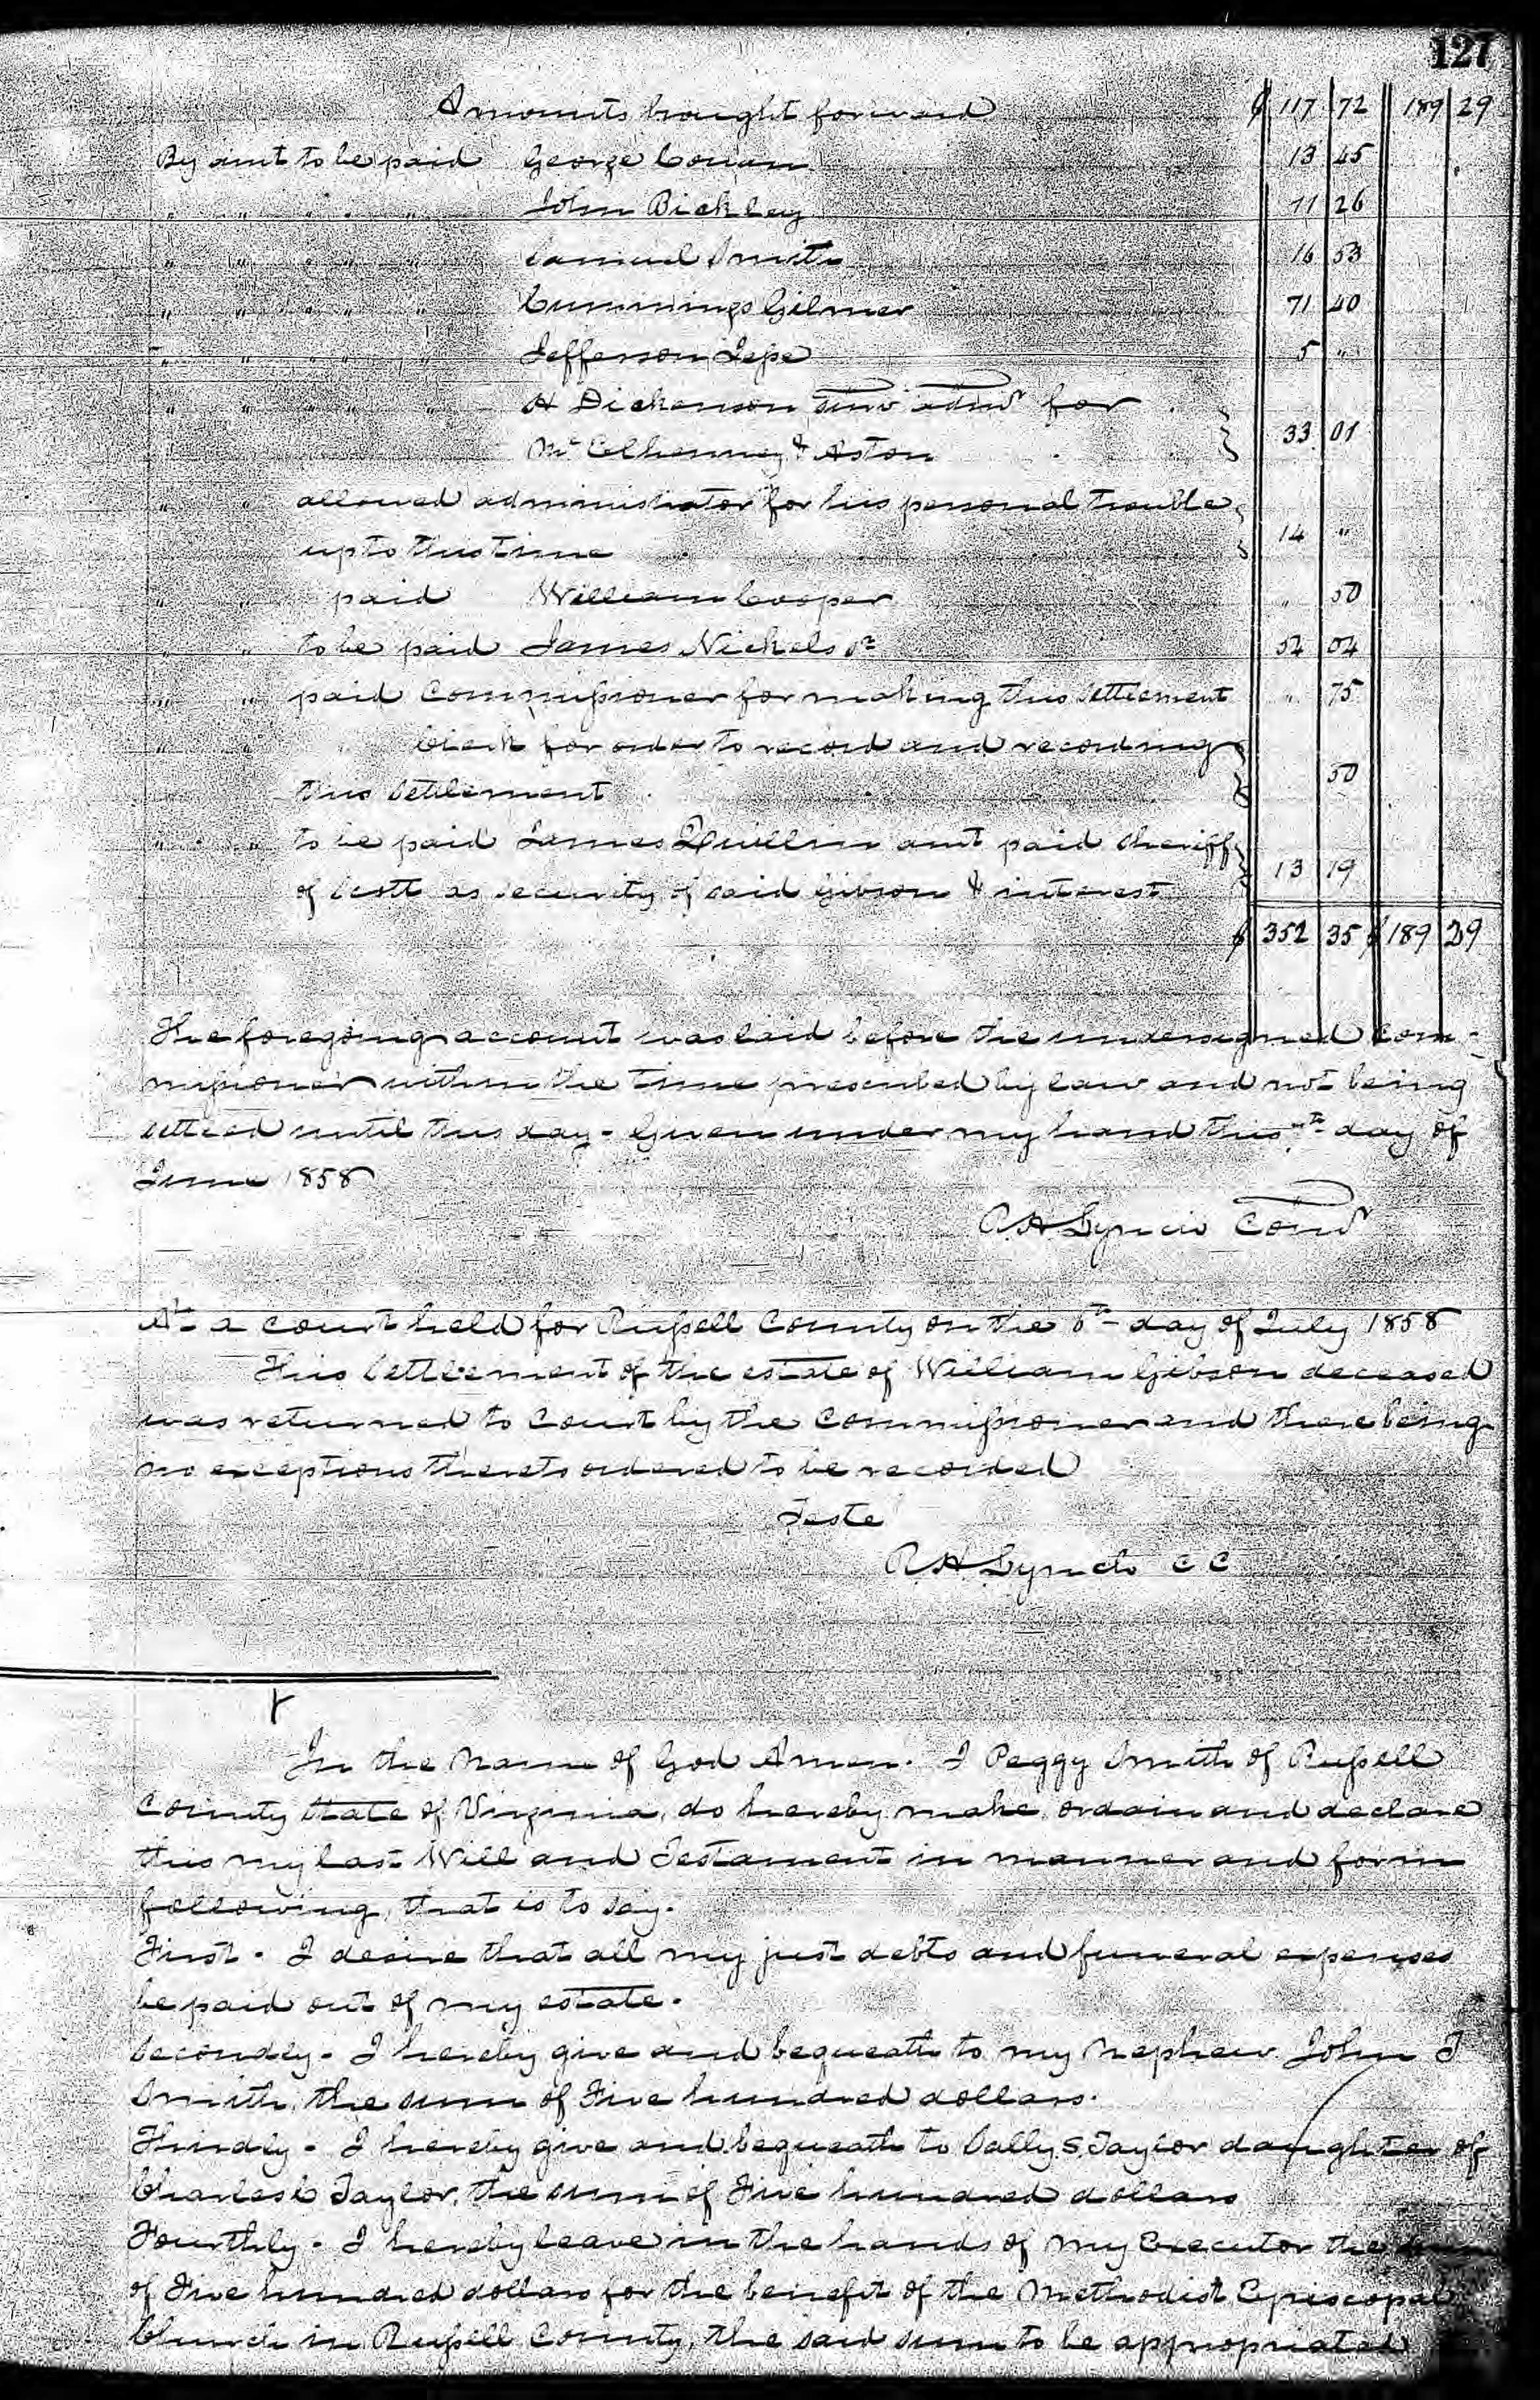 127
Amounts brought forward $ 117 72 189 29
By amt to be paid George Cowan 13 45
" " " " " John Bickley 11 26
" " " " " Samuel Smith 16 53
" " " " " Cummings Gilmer 71 40
" " " " " Jefferson Jessee 5 "
" " " " " H Dickenson Surv admr for
McElhenney & Aston 33 01
" " allowed administrator for his personal trouble
up to this time 14 "
" " paid William Cooper " 50
" " to be paid James Nickels Sr 54 04
" " paid Commissioner for making this settlement " 75
" " " Clerk for order to record and recording
this settlement 50
" " to be paid James Quillin amt paid sheriff
of Scott as security of said Gibson & interest 13 19
$ 352 35 $ 189 29
The foregoing account was laid before the undersigned Com-
missioner within the time prescribed by law and not being
settled until this day - Given under my hand this day of
June 1858
R H Lynch Comr
At a court held for Russell County on the 6th day of July 1858
This settlement of the estate of William Gibson deceased
was returned to Court by the Commissioner and there being
no exceptions thereto ordered to be recorded
Teste
R H Lynch C C
In the name of God Amen. I Peggy Smith of Russell
County State of Virginia, do hereby make, ordain and declare
this my last Will and Testament in manner and form
following, that is to say.
First. I desire that all my just debts and funeral expenses
be paid out of my estate.
Secondly. I hereby give and bequeath to my nephew John T
Smith, the sum of Five hundred dollars.
Thirdly. I hereby give and bequeath to Sally S. Taylor daughter of
Charles C Taylor, the sum of Five hundred dollars
Fourthly. I hereby leave in the hands of my Executor the sum
of Five hundred dollars for the benefit of the Methodist Episcopal
Church in Russell County, the said sum to be appropriated